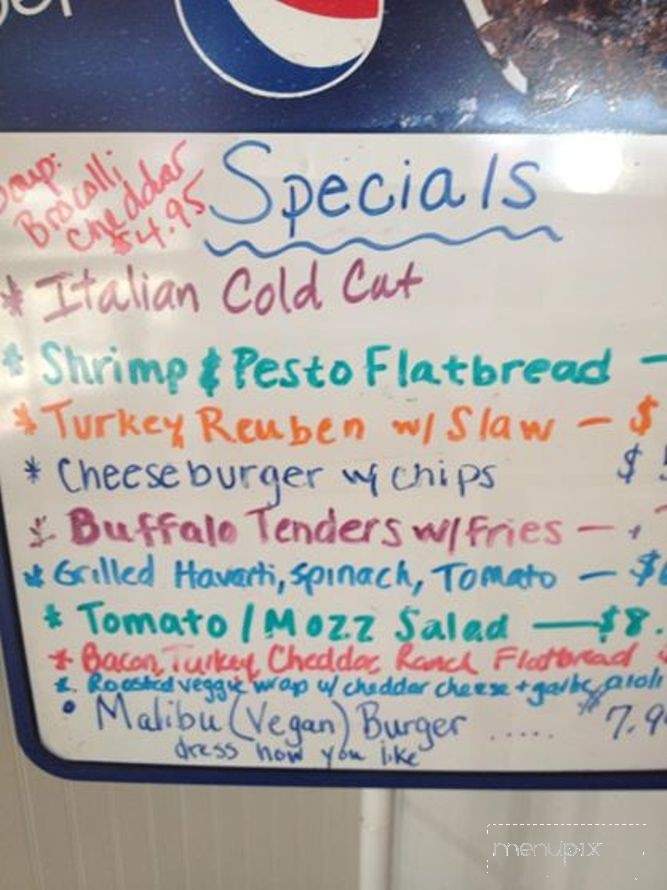 Soup:
Brocolli
Cheddar
$4.95
Specials
* Italian Cold Cut
* Shrimp & Pesto Flatbread -
* Turkey Reuben w/ Slaw - $
* Cheeseburger w/ chips $ 5
* Buffalo Tenders w/ Fries -
* Grilled Havarti, spinach, Tomato - $
* Tomato / Mozz Salad — $8.
* Bacon, Turkey, Cheddar Ranch Flatbread
* Roasted veggie wrap w/ cheddar cheese + garlic aioli
• Malibu (Vegan) Burger ..... $7.9
dress how you like
menupix